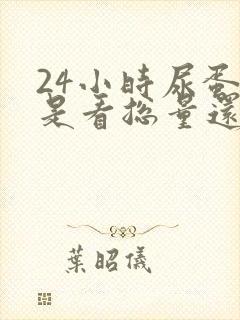 24小時尿蛋
是看總量還
葉昭儀